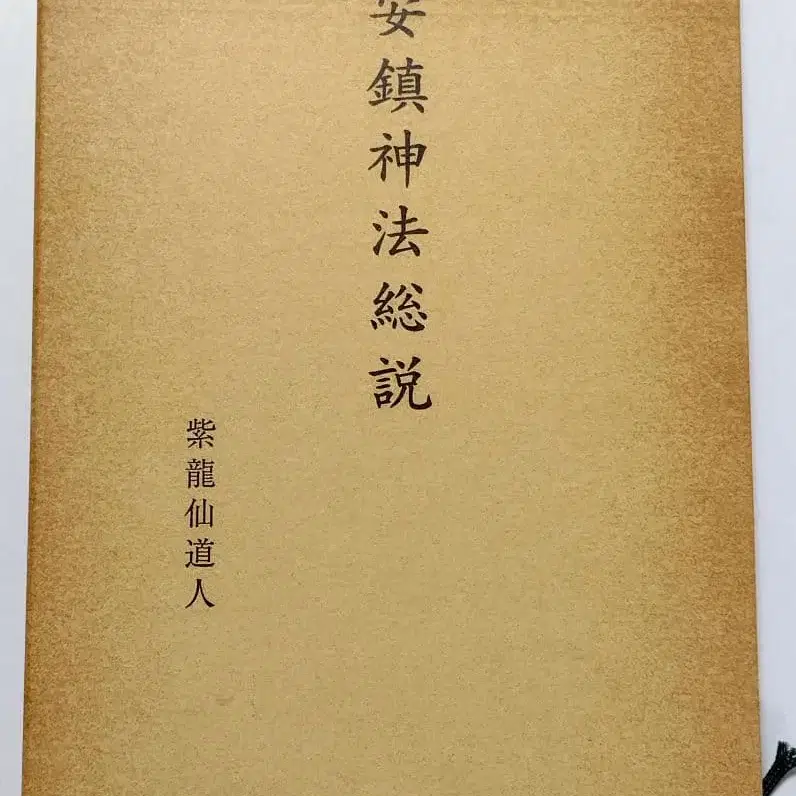 安鎮神法総説
紫龍仙道人